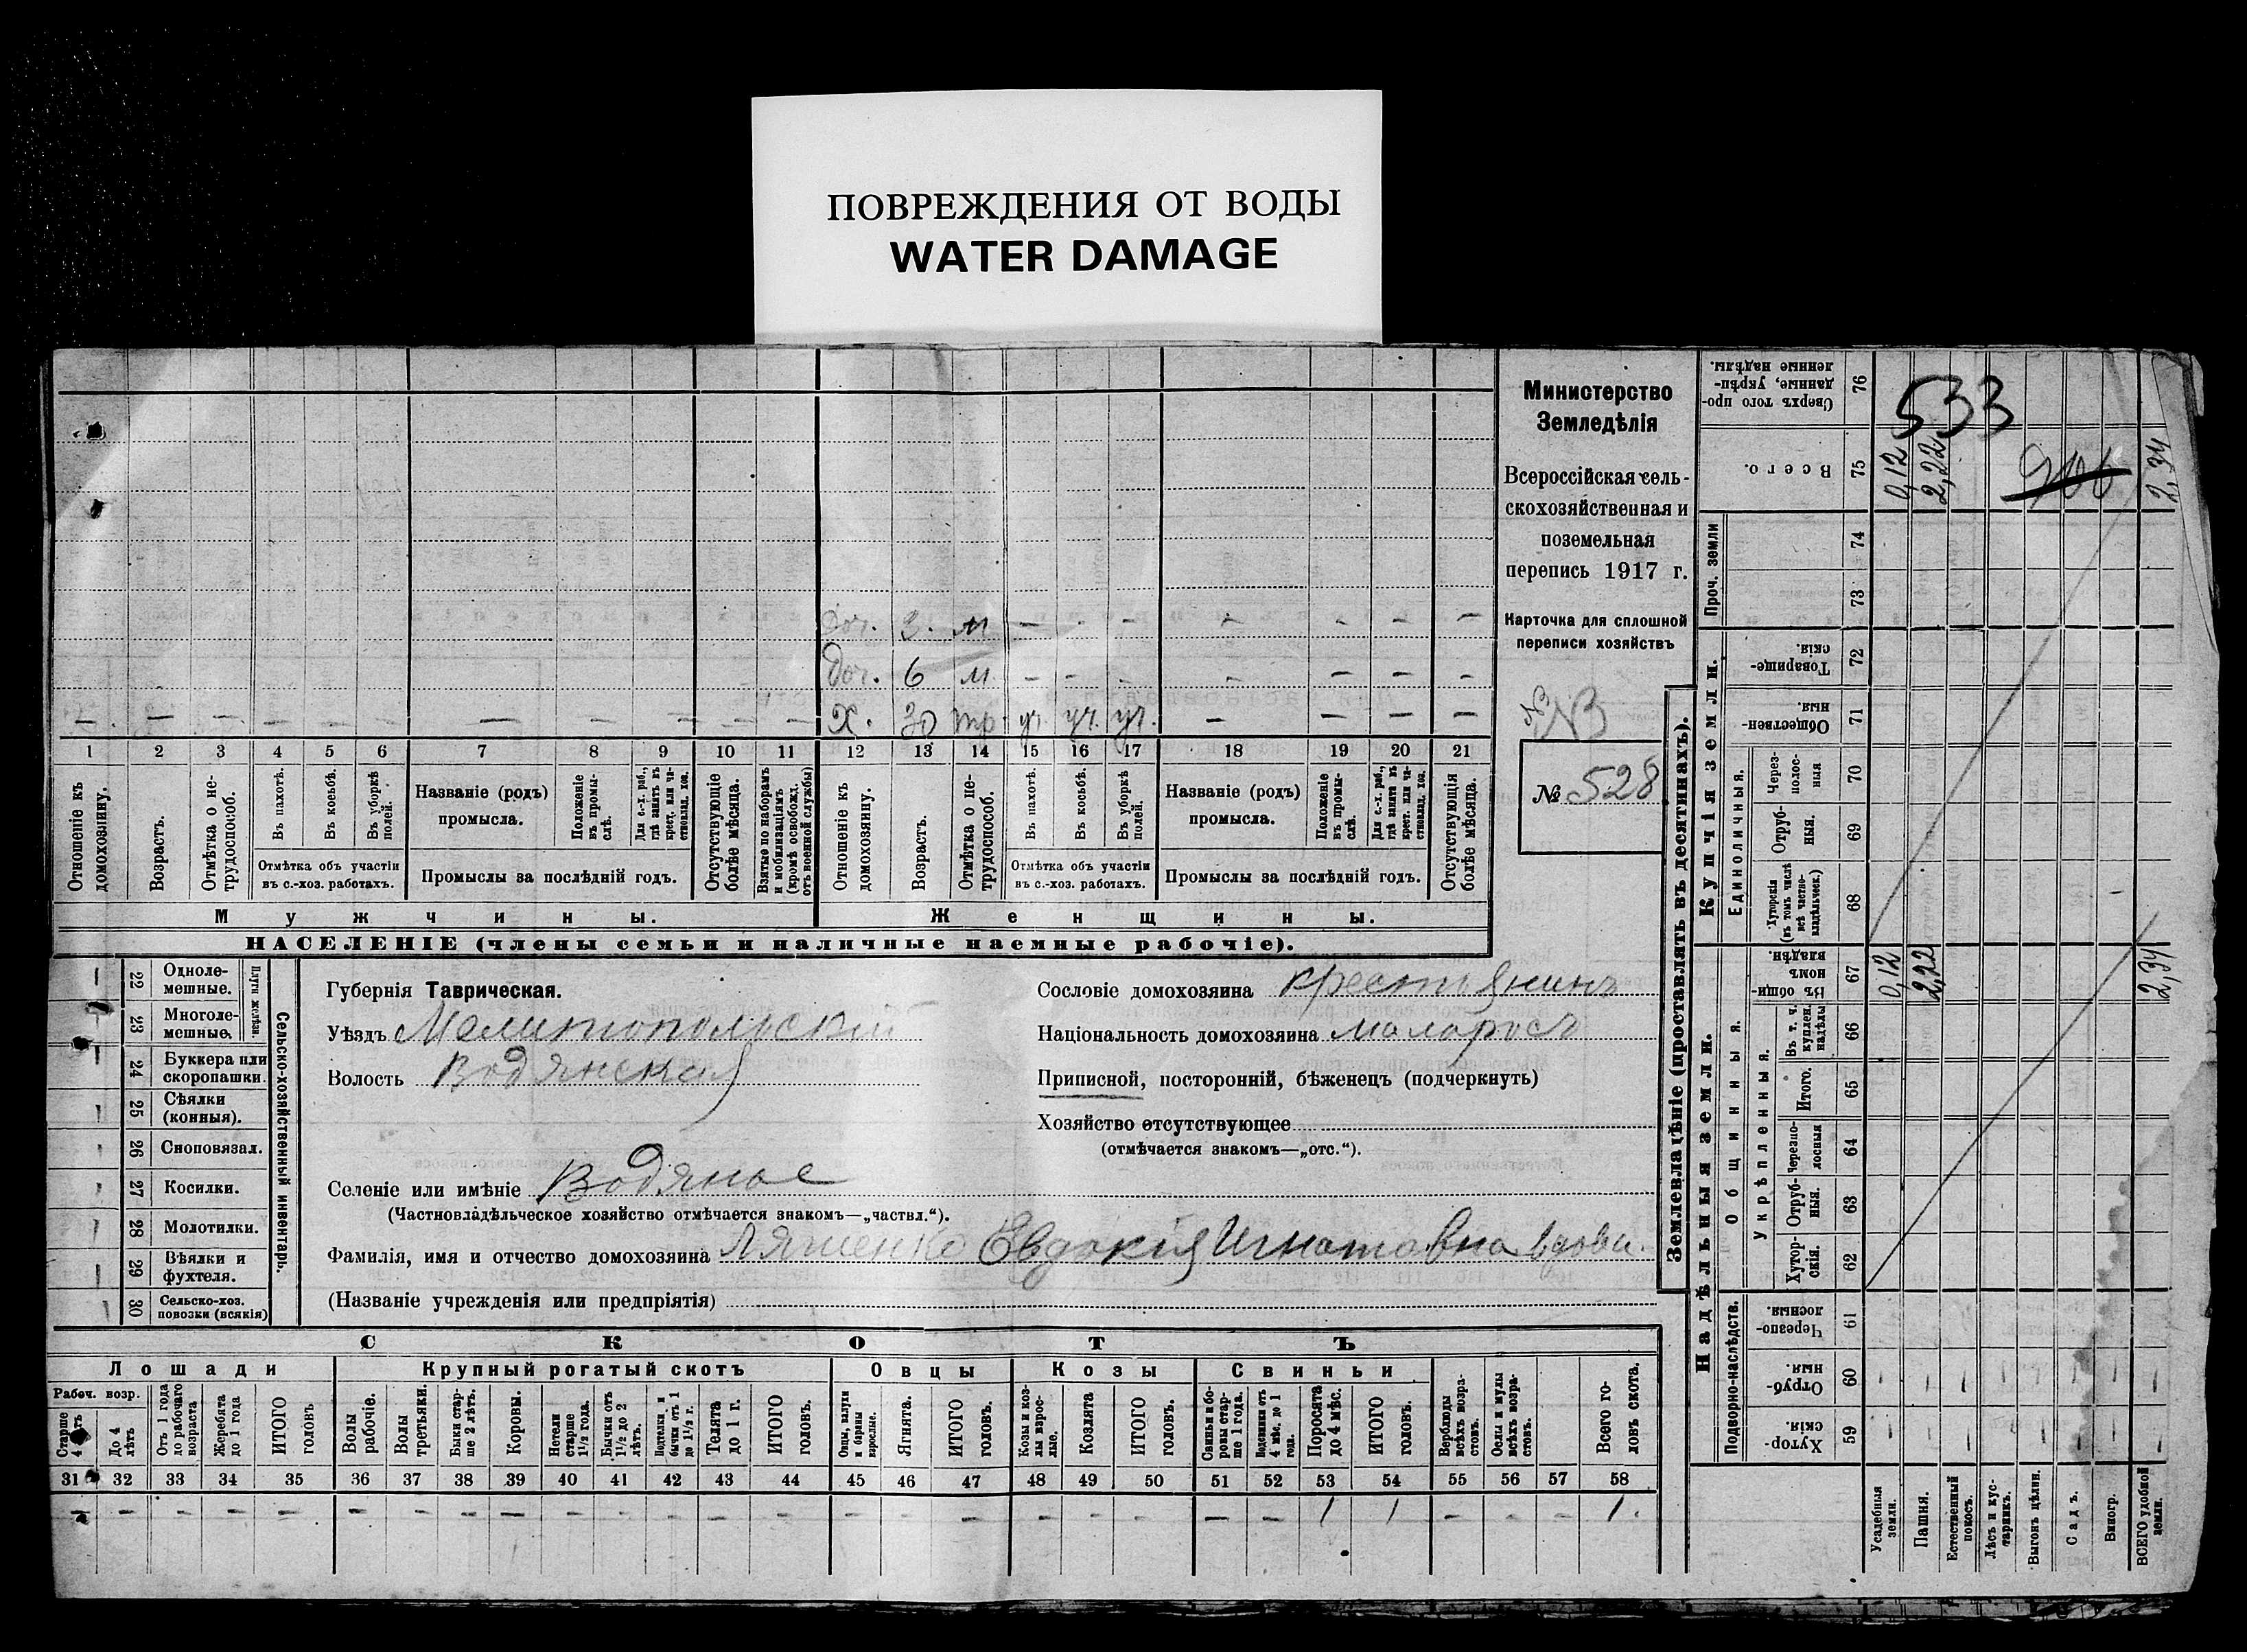 ПОВРЕЖДЕНИЯ ОТ ВОДЫ
WATER DAMAGE
Министерство
Земледѣлія
Всероссійская сель-
скохозяйственная и
поземельная
перепись 1917 г.
Карточка для сплошной
переписи хозяйствъ
№ 528
533
900
доч. 3. м – - – – – – –
доч. 6 м – – – – – – –
Х. 30 тр. уч. уч. уч. – – – –
1 2 3 4 5 6 7 8 9 10 11 12 13 14 15 16 17 18 19 20 21
Отношеніе къ домохозяину.
Возрастъ.
Отмѣтка о не-трудоспособ.
Въ пахотѣ.
Въ косьбѣ.
Въ уборкѣ полей.
Отмѣтка объ участіи
въ с.-хоз. работахъ.
Названіе (родъ)
промысла.
Положеніе въ промы-слѣ.
Для с.-х. раб., гдѣ занятъ въ крест. или ча-стновлад. хоз.
Промыслы за послѣдній годъ.
Отсутствующіе болѣе мѣсяца.
Взятые по наборамъ и мобилизаціямъ (кромѣ освобожд. отъ военной службы)
Отношеніе къ домохозяину.
Возрастъ.
Отмѣтка о не-трудоспособ.
Въ пахотѣ.
Въ косьбѣ.
Въ уборкѣ полей.
Отмѣтка объ участіи
въ с.-хоз. работахъ.
Названіе (родъ)
промысла.
Положеніе въ промы-слѣ.
Для с.-х. раб., гдѣ занята въ крест. или ча-стновлад. хоз.
Промыслы за послѣдній годъ.
Отсутствующія болѣе мѣсяца.
Мужчины. Женщины.
НАСЕЛЕНІЕ (члены семьи и наличные наемные рабочіе).
Сельско-хозяйственный инвентарь.
Плуги желѣзн.
22 Одноле-мешные.
23 Многоле-мешные.
24 Буккера или скоропашки.
25 Сѣялки (конныя).
26 Сноповязал.
27 Косилки.
28 Молотилки.
29 Вѣялки и фухтеля.
30 Сельско-хоз. повозки (всякія)
Губернія Таврическая.
Уѣздъ Мелитопольскій
Волость Водянская
Селеніе или имѣніе Водяное
(Частновладѣльческое хозяйство отмѣчается знакомъ—„частвл.“).
Фамилія, имя и отчество домохозяина Ляшенко Евдокія Игнатовна вдова.
(Названіе учрежденія или предпріятія)
Сословіе домохозяина крестьянинъ
Національность домохозяина малороссъ
Приписной, посторонній, бѣженец (подчеркнуть)
Хозяйство отсутствующее
(отмѣчается знакомъ—„отс.“).
СКОТЪ
Лошади Крупный рогатый скотъ Овцы Козы Свиньи
Рабоч. возр.
Старше 4 лѣтъ
До 4 лѣтъ
Отъ 1 года до рабочаго возраста
Жеребята до 1 года
ИТОГО головъ
Волы рабочіе.
Волы третьяки.
Быки стар-ше 2 лѣтъ.
Коровы.
Нетели старше 1½ года.
Бычки отъ 1½ до 2 лѣтъ.
Подтелки, и бычки отъ 1 до 1½ г.
Телята до 1 г.
ИТОГО головъ.
Овцы, валухи и бараны взрослые.
Ягнята.
ИТОГО головъ.
Козы и коз-лы взрос-лые.
Козлята
ИТОГО головъ.
Свиньи и бо-ровы стар-ше 1 года.
Подсвинки отъ 4 мѣс. до 1 года.
Поросята до 4 мѣс.
ИТОГО головъ.
Верблюды всѣхъ возра-стовъ.
Ослы и мулы всѣхъ возра-стовъ.
Всего го-ловъ скота.
31 32 33 34 35 36 37 38 39 40 41 42 43 44 45 46 47 48 49 50 51 52 53 54 55 56 57 58
– – – – – – – – – – – – – – – – – – – – – – 1 1 – – – 1.
Землевладѣніе (проставлять въ десятинахъ).
Купчія земли.
Надѣльныя земли.
Сверхъ того про-данные, укрѣп-ленные надѣлы. 76
Всего. 75 0,12 2,22 2,34
Проч. земли 74
73
Товарище-скія. 72
Обществен-ныя. 71
Единоличныя.
Через-полос-ныя 70
Отруб-ныя. 69
Хуторскія (въ томъ числѣ всѣ частно-владѣльческ.) 68
Общинныя.
Въ общин-номъ владѣн. 67 0,12 2,22 2,34
Укрѣпленныя.
Въ т. ч. куплен. надѣлы 66
Итого. 65
Черезпо-лосныя 64
Отруб-ныя. 63
Хутор-скія. 62
Подворно-наслѣдств.
Черезпо-лосныя. 61
Отруб-ныя. 60
Хутор-скія. 59
Усадебныя земли.
Пашня.
Естественный покосъ.
Лѣсъ и кус-тарникъ.
Выгонъ цѣлин.
Садъ.
Виногр.
ВСЕГО удобной земли.